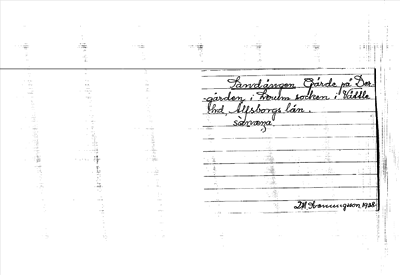 Sandängen Gärde på Der-
gården i Lrum socken i Vättle
hd, Älfsborgs län.
sàṇṇaṇa
Hemmingsson 1928